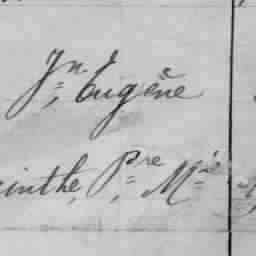 Jn Eugène
inthe, Pre Mie